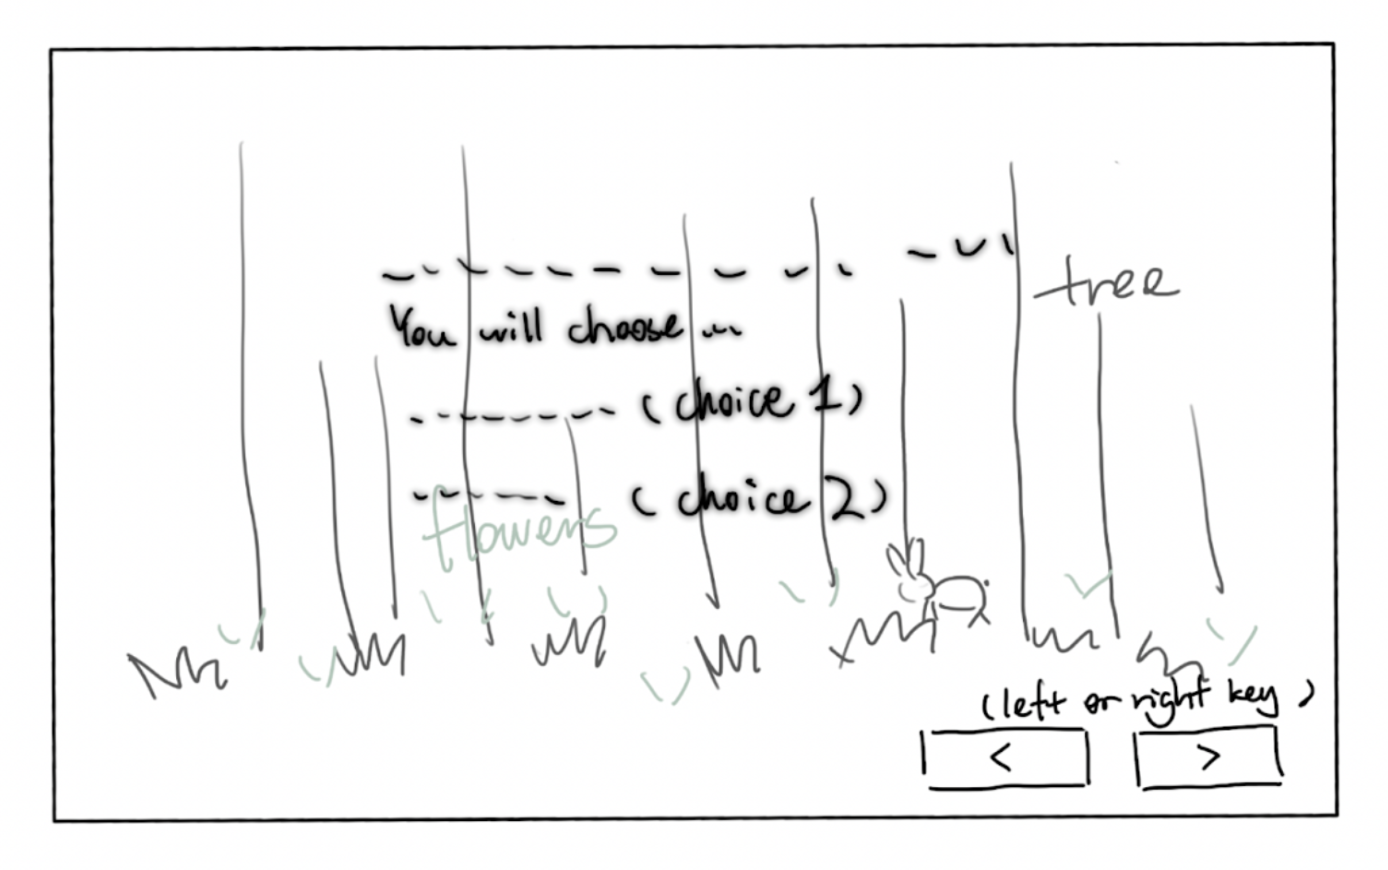 You will choose ...
tree
(choice 1)
(choice 2)
flowers
(left or right key)
< >